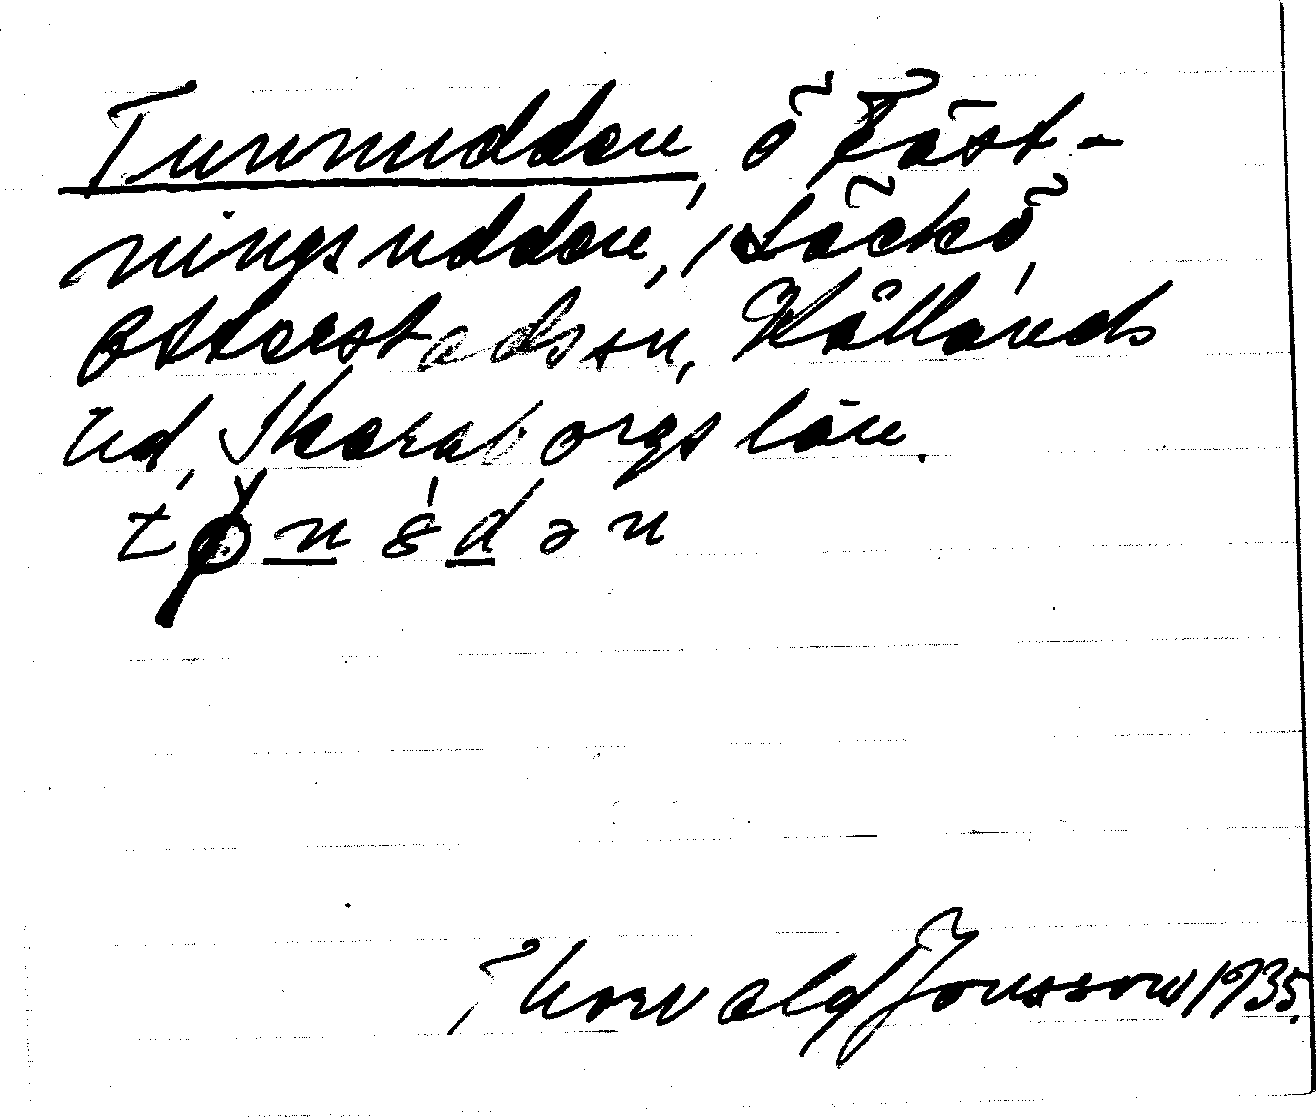 Tunnudden, ö Fäst-
ningsudden, Läckö,
Otterstads sn, Kållands
hd, Skaraborgs län.
Thorvald Jonsson 1935.